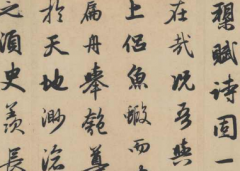 槊賦詩固一
在哉况吾與
上侶魚蝦而
扁舟舉匏尊
於天地渺滄
之須臾羨長